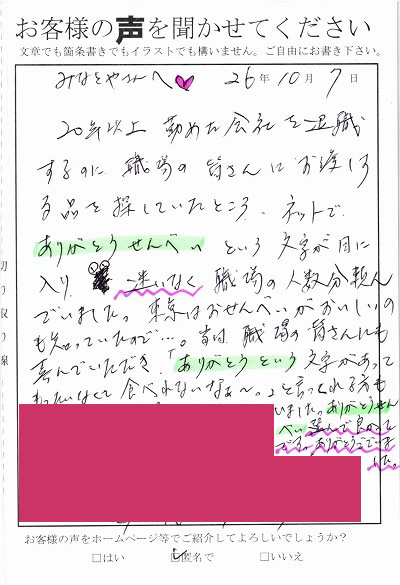 お客様の声を聞かせてください
文章でも箇条書きでもイラストでも構いません。ご自由にお書き下さい。
みなとやさんへ 26年 10月 7日
20年以上 勤めた会社を退職
するのに 職場の皆さんにお渡しす
る品を探していたところ、ネットで
ありがとうせんべい という文字が目に
入り 迷いなく 職場の人数分頼ん
でいました。東京はおせんべいがおいしいの
も知っていたので…。 職場の皆さんにも
喜んでいただき、「ありがとうという文字があって
もったいなくて食べれないなぁ〜。」と言ってくれる方も
いました。ありがとうせん
べい 選んで良かった
です。ありがとうございま
した。
切り取り線
お客様の声をホームページ等でご紹介してよろしいでしょうか?
□はい □匿名で □いいえ